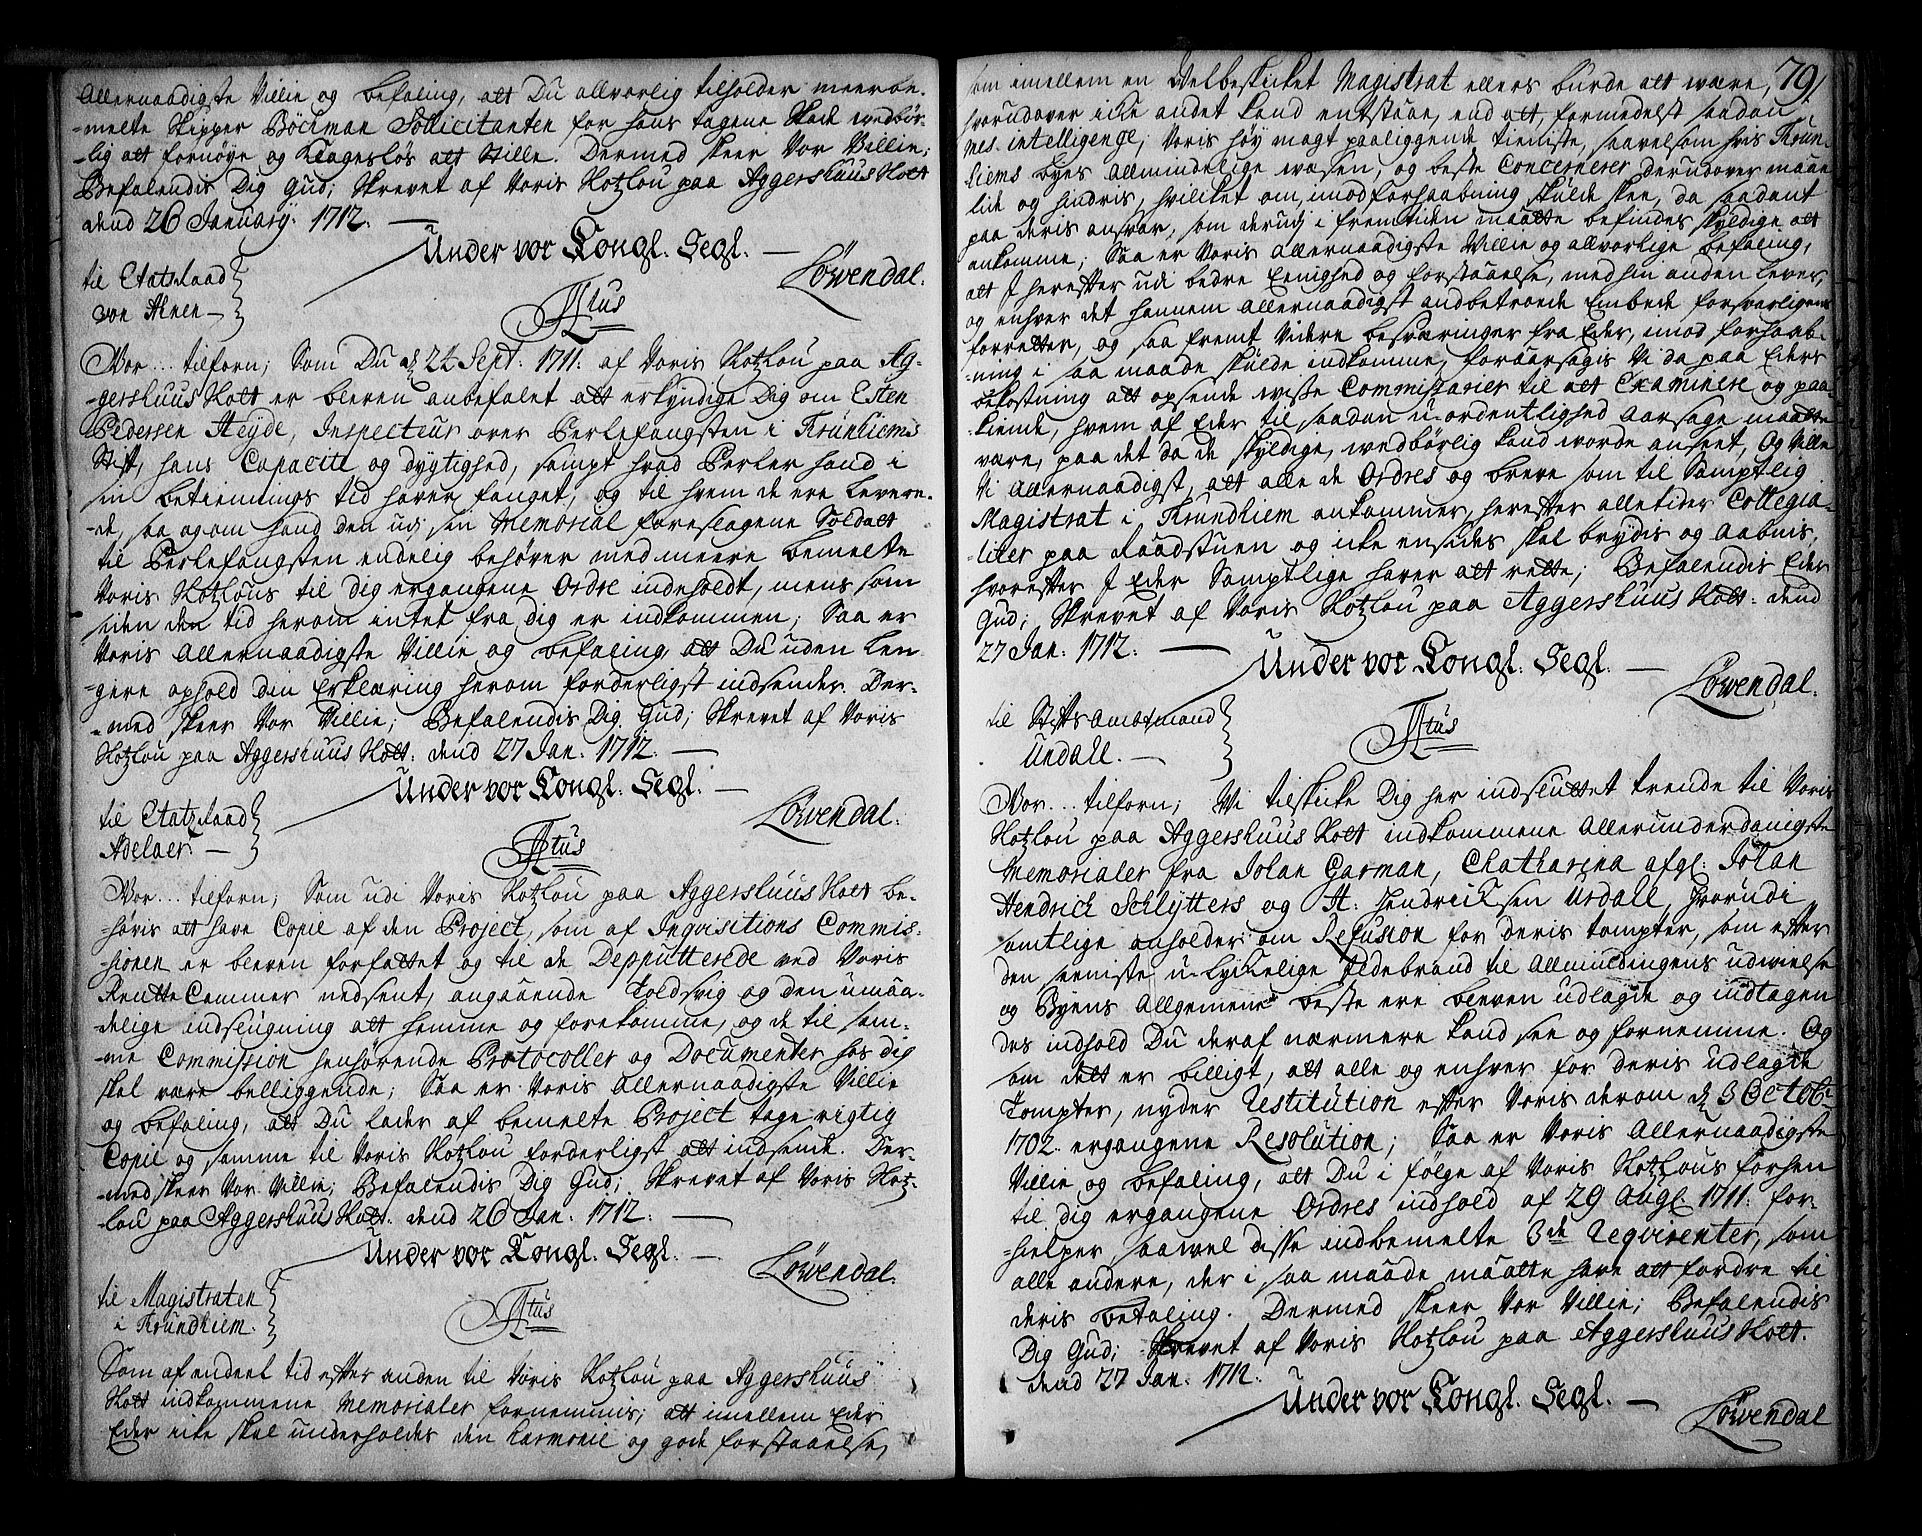 Allernaadigste Villie og befaling, att Du allvorlig tilholder meerbe-
-melte Skipper Böckman Sollicitanten for hans tagene Skade wedbör-
-lig att fornöye og Klagesløs att Stille. Dermed skeer Vor Villie;
Befalendis Dig Gud; Skrevet af Voris Slotzlou paa AggershuusSlott
dend 26 January: 1712.
Under vor Kongl. Segl.
Löwendal.
til Etatsraad
von Ahnen
Ftus
Vor... tilforn; Som Du d 24 Sept: 1711. af Voris Slotzlou paa Ag-
gershuus Slott er bleven anbefalet att erkyndige Dig om Esten
Pedersen Heyde, Inspecteur over Perlefangsten i Trundhiems
Stift, hans Capacite og dygtighed, sampt hvad Perler hand i
sin betiennings tid haver fanget, og til hvem de ere Levere-
-de, saa og om hand den udj sin Memorial foreslagene Soldatt
til Perlefangsten endelig behöver med meere bemelte
Voris Slotzlous til Dig ergangene Ordre indeholdt, mens som
siden den tid herom intet fra Dig er indkommen; Saa er
Voris Allernaadigste Villie og befaling, att Du uden Len-
-gere ophold din Erklæring herom forderligst indsender. Der-
-med skeer Vor Villie; Befalendis Dig Gud; Skrevet af Voris
Slotzlou paa Aggershuus Slott: dend 27 Jan: 1712.
Under vor Kongl. Segl.
Löwendal.
til Etatzraad
Adelaer.
Ftus
Vor... tilforn; Som udi Voris Slotzlou paa Aggershuus Slott be-
-höris att have Copie af den Project, som af Inqvisitions Commis-
-sionen er bleven forfattet og til de Depputterede ved Voris
Rentte Cammer nedsent, angaaende Toldsvig og den umaa-
-delige indsnigning att hemme og forekomme, og de til sam-
-me Commission henhörende Protocoller og Documenter hos dig
skal være beliggende; Saa er Voris Allernaadigste Villie
og befaling, att Du lader af bemelte Project tage rigtig
Copie og samme til Voris Slotzlou forderligst att indsende. Der-
-med skeer Vor Villie; Befalendis Dig Gud; Skrevet af Voris Slotz-
-lou paa Aggershuus Slott. dend 26 Jan. 1712.
Under vor Kongl. Segl.
Löwendal.
til Magistraten
i Trundhiem.
Ftus
Som af endeel tid efter anden til Voris Slotzlou paa Aggershuus
Slott indkommene Memorialer fornemmis; att imellem Eder
Eder icke skal underholdes den Harmonie og gode forstaaelse,
79
som imellem en Velbesticket Magistrat ellers burde att wære,
hvorudover icke andet kand entstaae, end att, formedelst saadan
mes-intelligenge; Voris höy magt paaliggende tieniste, saavelsom hvis Trun-
hiems byes Allmindelige wæsen, og beste Concernerer derudover maae
lide og hindris, hvilcket om, imod forhaabning skulde skee, da saadant
paa deris ansvar, som derudj i fremtiden maatte befindes skyldige att
ankomme; Saa er Voris Allernaadigste Villie og allvorlige befaling,
att J herefter udi bedre Eenighed og forstaaelse, med hin anden Lever,
og enhver det hannem Allernaadigst andbetroede Embede forsvarligen
forretter, og saa fremt Videre besværinger fra Eder, imod forhaab-
-ning i saa maade skulde indkomme, foraarsagis Vi da paa Eders
bekostning att opsende wisse Commissarier til att Examinere og paa-
kiende, hvem af Eder til saadan u-ordentlighed Aarsage maatte
være, paa det da de skyldige, wedbörlig kand worde anseet, Og Ville
Vi Allernaadigst, att alle de Ordres og breve som til Samptlig
Magistrat i Trundhiem ankommer, herefter alletider Collegia-
-liter paa Raadstuen og icke ensides skal brydis og aabnis,
hvorefter J Eder Samptlige haver att rette; Befalendis Eder
Gud; Skrevet af Voris Slotzlou paa Aggershuus Slott: dend
27 Jan: 1712.
Under vor Kongl. Segl.
Löwendal.
til Stifts Ambtmand
Undall.
Ftus
Vor... tilforn; Vi tilskicke Dig her indsluttet trende til Voris
Slotzlou paa Aggershuus Slott indkommene Allerunderdanigste
Memorialer fra Johan Garman, Chatharina afgl: Johan
Hendrich Schlytters og H: Hendricksen Urdall, hvorudi
samtlige anholder om Refusion for deris tompter, som efter
den seniste u-lyckelige Jldebrand til Allmindingens udwielse
og Byens Allgemene beste ere bleven udlagde og indtagen
des indhold Du deraf nærmere kand see og fornemme. Og
om dett er billigt, att alle og enhver for deris udlagde
Tompter, nyder Restitution efter Voris derom d 3 Octob:
1702. ergangene Resolution; Saa er Voris Allernaadigste
Villie og befaling, att Du i fölge af Voris Slotzlous forhen
til dig ergangene Ordres indhold af 29 Augl. 1711. for-
-hielper, saawel disse indbemelte 3de Reqvirenter, som
alle andere, der i saa maade maatte have att fordre til
deris betaling. Dermed skeer Vor Villie; Befalendis
Dig Gud; Skrevet af Voris Slotzlou paa Aggershuus Slott.
dend 27 Jan: 1712.
Under vor Kongl. Segl.
Löwendal